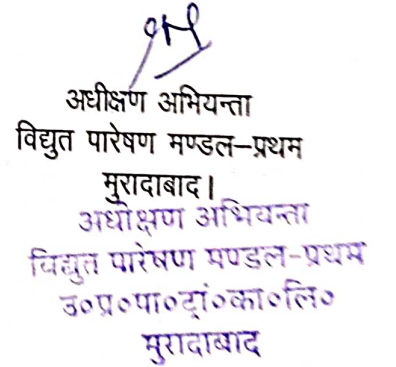 अधीक्षण अभियन्ता
विद्युत पारेषण मण्डल–प्रथम
मुरादाबाद।
अधीक्षण अभियन्ता
विद्युत पारेषण मण्डल-प्रथम
उ०प्र०पा०ट्रां०का०लि०
मुरादाबाद